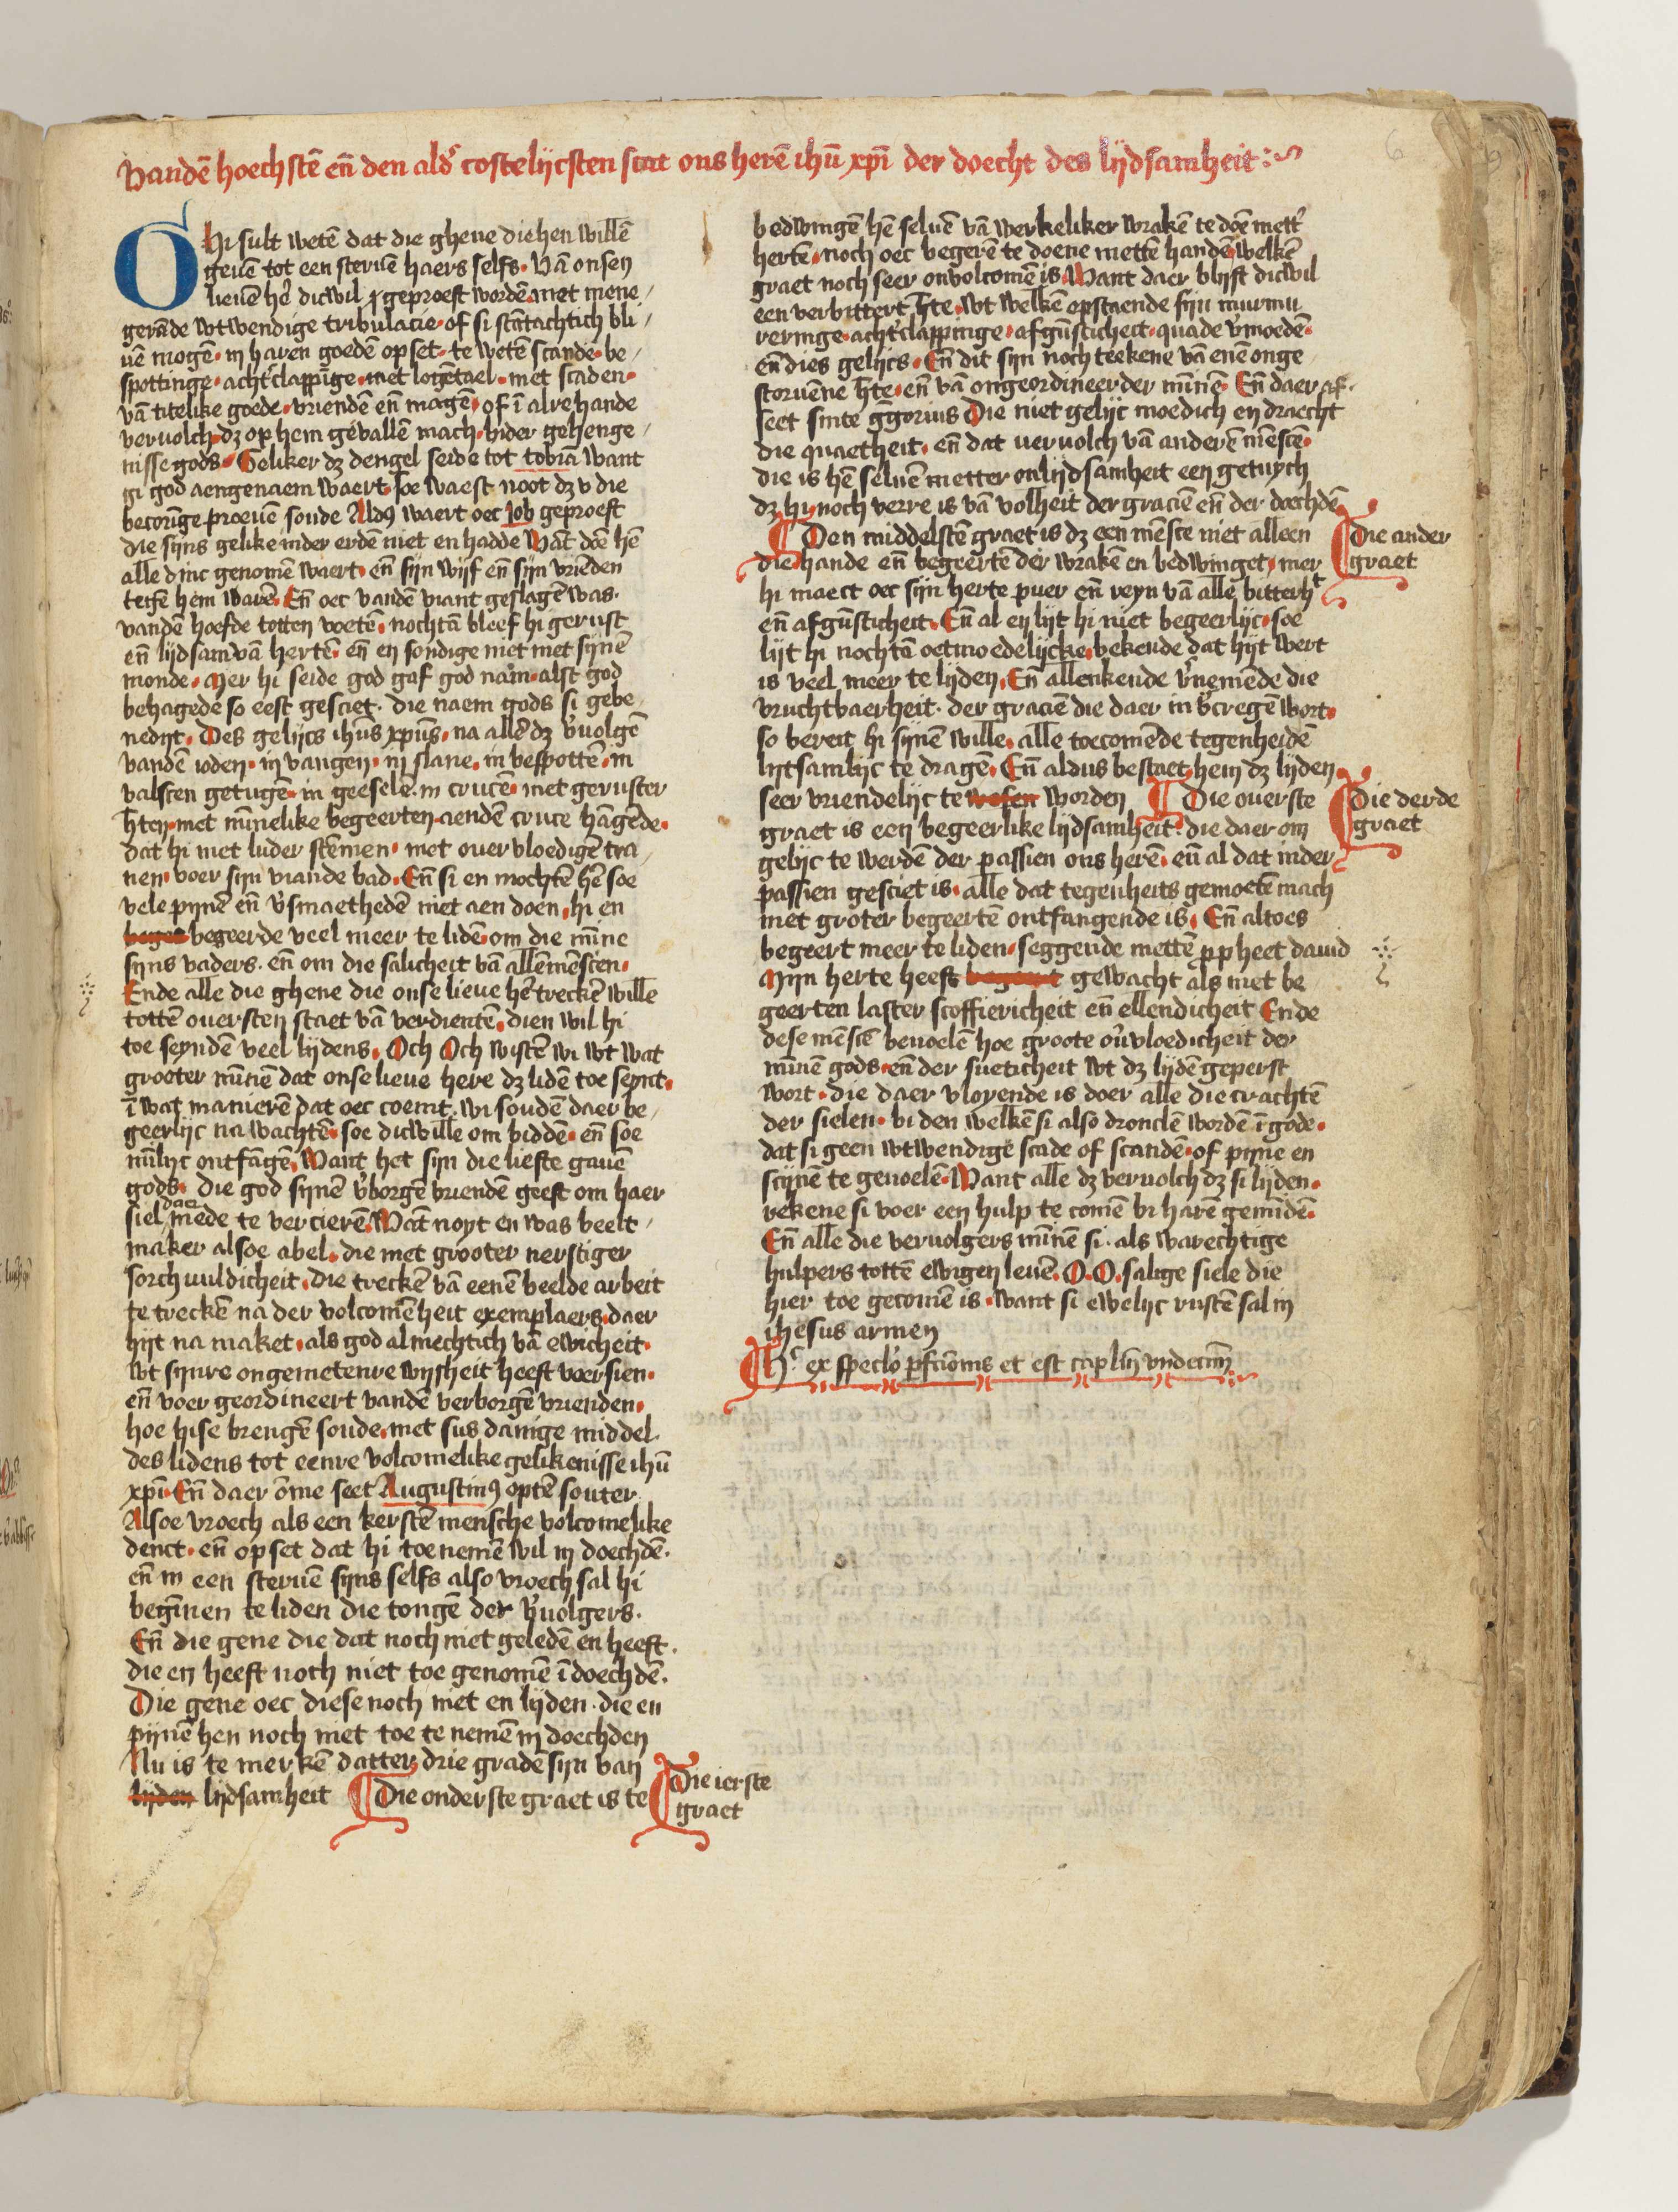 Vandē hoechstē eñ den ald' costelijcsten staet ons herē ihū xpī der doecht des lijdsamheit
GHi sult wetē dat die ghene die hen willē
geuē tot een steruē haers selfs. Vā onsen
lieuē hē dicwil geproeft wordē met mene
gerāde wtwendige tribulacie of si stātachtich bli
uē mogē in haren goedē opset te wetē scande be
spottinge acht'clappīge met logētael met scaden
vā titelike goede vriendē eñ magē of ī alrehande
veruolch dz op hem geuallē mach hider gehenge
nisse gods Geliker dz dengel seide tot tobiā want
gi god aengenaem waert soe waest noot dz v die
becorīge proeuē soude Ald9 waert oec job geproeft
die sijns gelike inder erdē niet en hadde Wāt doē hē
alle dinc genomē waert eñ sijn wijf eñ sijn vriēden
tegē hem warē Eñ oec vandē viant geslagē was
vandē hoefde totten voetē nochtā bleef hi gerust
eñ lijdsam vā hertē eñ en sondige niet met sijnē
monde Mer hi seide god gaf god nam alst god
behagede so eest gesciet die naem gods si gebe
nedijt Des gelijcs ihūs xpūs na allē dz v'uolgē
vandē ioden in vangen in slane in bespottē in
valscen getugē in geesele in crucē met geruster
h'ten met mīnelike begeerten aendē cruce hāgēde
dat hi met luder stēmen met ouervloedigē tra
nen voer sijn viande bad Eñ si en mochtē hē soe
vele pijnē eñ v'smaethedē niet aen doen hi en
begee begeerde veel meer te lidē om die mīne
sijns vaders eñ om die salicheit vā allē mēscen
Ende alle die ghene die onse lieue hē treckē wille
tottē ouersten staet vā verdientē dien wil hi
toe seyndē veel lijdens Och Och wistē wi wt wat
grooter mīnē dat onse lieue here dz lidē toe seynt
ī wat manierē dat oec coemt wi soudē daer be
geerlijc na wachtē soe dicwille om biddē eñ soe
mīlijc ontfāgē Want het sijn die liefste gauē
gods die god sijnē v'borgē vriendē geeft om haer
siel daer mede te vercierē Wāt noyt en was beelt
maker alsoe abel die met grooter nerstiger
sorchuuldicheit die treckē vā eenē beelde arbeit
te treckē na der volcomēheit exemplaers daer
hijt na maket als god almechtich vā ewicheit
wt sijnre ongemetenre wijsheit heeft voersien
eñ voer geordineert vandē verborgē vrienden
hoe hise brengē soude met sus danige middel
des lidens tot eenre volcomelike gelikenisse ihū
xpī Eñ daer ōme seet Augustin9 optē souter
Alsoe vroech als een kerstē mensche volcomelike
denct eñ opset dat hi toe nemē wil in doechdē
eñ in een steruē sijns selfs also vroech sal hi
begīnen te liden die tongē der v'uolgers
Eñ die gene die dat noch niet geledē en heeft
die en heeft noch niet toe genomē ī doechdē
Die gene oec diese noch niet en lijden die en
pijnē hen noch niet toe te nemē in doechden
Nu is te merkē datter drie gradē sijn van
lijden lijdsamheit Die onderste graet is te
Die ierste
graet
bedwingē hē seluē vā werkeliker wrakē te doē mett'
hertē noch oec begerē te doene mettē handē welkē
graet noch seer onvolcomē is Want daer blijft dicwil
een verbittert h'te wt welkē opstaende sijn murmu
reringe acht'clappinge afgūsticheit quade v'moedē
eñ dies gelijcs Eñ dit sijn noch teekene vā enē onge
storuēne h'te eñ vā ongeordineerder mīnē Eñ daer af
seet sinte g'gorius Die niet gelijc moedich en draecht
die quaetheit eñ dat veruolch vā anderē mēscē
die is hē seluē metter onlijdsamheit een getuych
dz hi noch verre is vā volheit der graciē eñ der doechdē
Den middelstē graet is dz een mēsce niet alleen
die hande eñ begeertē der wrakē en bedwinget mer
Die ander
graet
hi maect oec sijn herte puer eñ reyn vā alle bitterht
eñ afgūsticheit Eñ al en lijt hi niet begeerlijc soe
lijt hi nochtā oetmoedelijcke bekende dat hijt wert
is veel meer te lijden Eñ allenkende v'nemēde die
vruchtbaerheit der graciē die daer in v'cregē wort
so bereit hi sijnē wille alle toecomēde tegenheidē
lijtsamlijc te dragē Eñ aldus bestaet hem dz lijden
seer vriendelijc te wesen worden Die ouerste
Die derde
graet
graet is een begeerlike lijdsamheit die daer om
gelijc te werdē der passien ons herē eñ al dat inder
passien gesciet is alle dat tegenheits gemoetē mach
met groter begeertē ontfangende is Eñ altoes
begeert meer te liden seggende mettē ppheet dauid
Mijn herte heeft begeert gewacht als met be
geerten laster scoffiericheit eñ ellendicheit Ende
dese mēscē beuoelē hoe groote ou'vloedicheit der
mīnē gods eñ der sueticheit wt dz lijdē geperst
wort die daer vloyende is doer alle die crachtē
der sielen bi den welkē si also dronckē wordē ī gode
dat si geen wtwendige scade of scandē of pijne en
scijnē te geuoelē Want alle dz veruolch dz si lijden
rekene si voer een hulp te comē bi harē gemīdē
Eñ alle die veruolgers mīnē si als warechtige
hulpers tottē ewigen leuē O O salige siele die
hier toe gecomē is want si ewelijc rustē sal in
ihesus armen
Hc ex speclo pfciōnis et est caplm vndecim